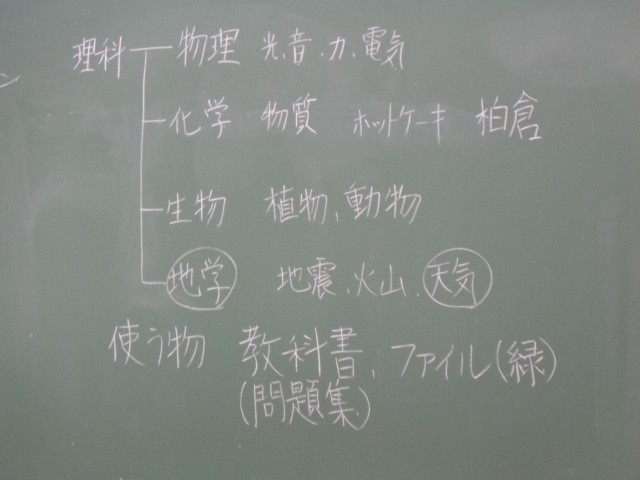 理科 物理 光、音、力、電気
化学 物質 ホットケーキ 柏倉
生物 植物、動物
地学 地震、火山、天気
使う物 教科書、ファイル(緑)
(問題集)